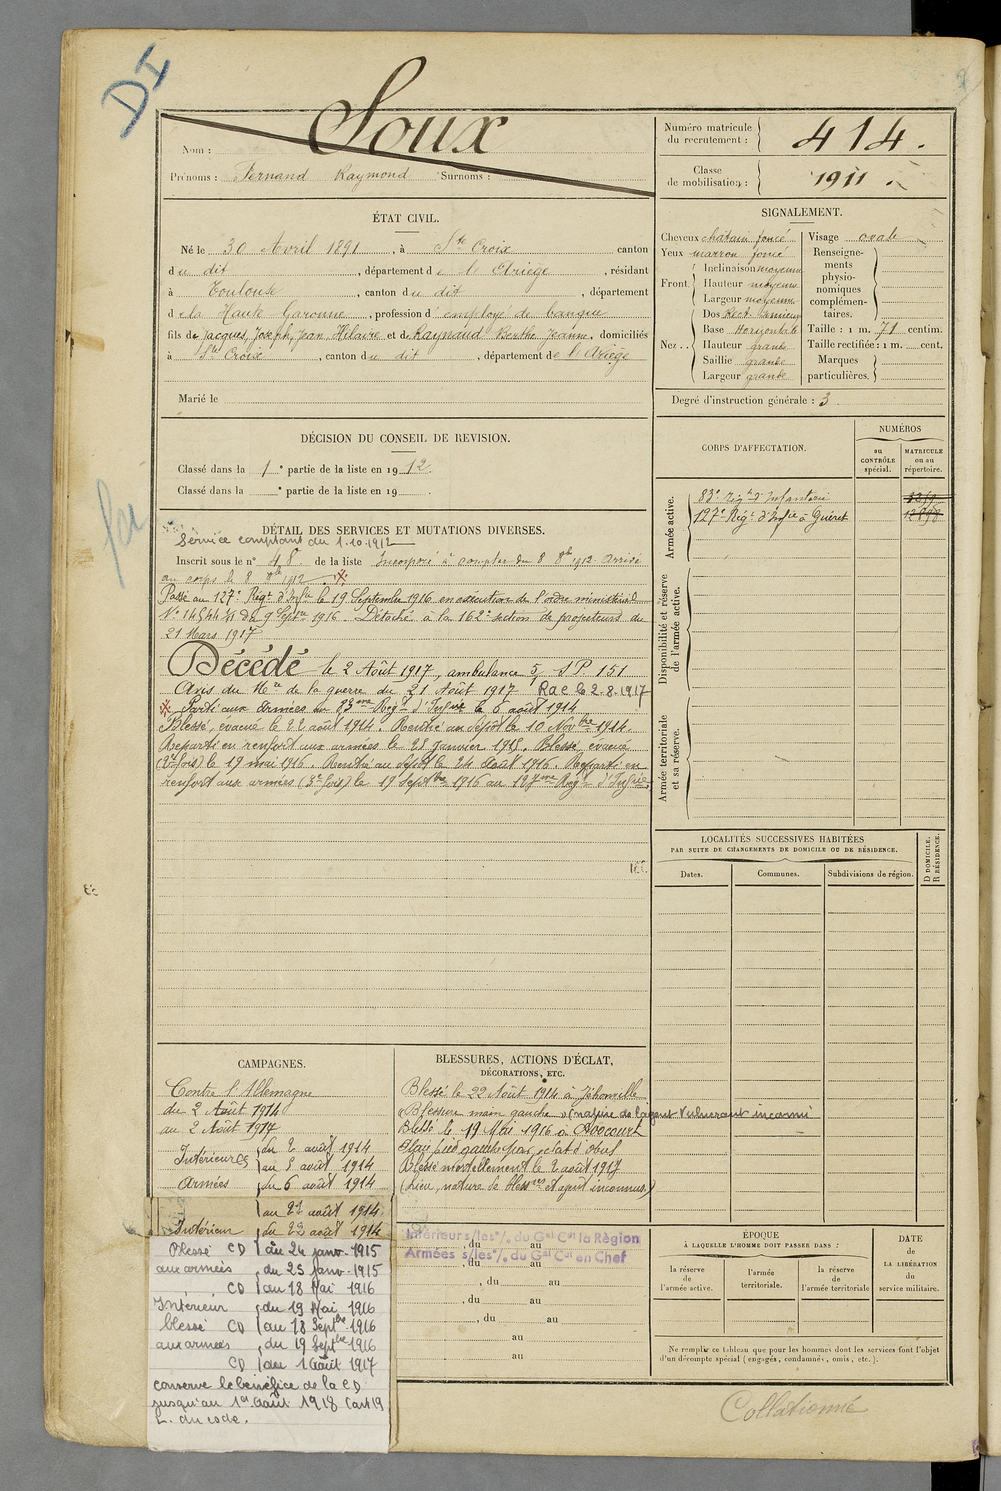 DI
Nom : Soux
Prénoms : Fernand Raymond Surnoms :
Numéro matricule du recrutement : 414.
Classe de mobilisation : 1911
ÉTAT CIVIL.
Né le 30 Avril 1891, à Ste Croix canton
du dit, département de l'Ariège, résidant
à Toulouse, canton du dit, département
de la Haute Garonne, profession d'employé de banque
fils de Jacques, Joseph, Jean Hilaire et de Raynaud Berthe Jeanne, domiciliés
à Ste Croix, canton du dit, département de l'Ariège
Marié le
SIGNALEMENT.
Cheveux châtain foncé
Yeux marron foncé
Front Inclinaison moyenne
Hauteur moyenne
Largeur moyenne
Nez Dos Rect.
Base Horizontale
Hauteur grande
Saillie grande
Largeur grande
Visage ovale
Renseignements physionomiques complémentaires.
Taille : 1 m. 71 centim.
Taille rectifiée : 1 m. cent.
Marques particulières.
Degré d'instruction générale : 3
DÉCISION DU CONSEIL DE REVISION.
Classé dans la 1e partie de la liste en 1912.
Classé dans la e partie de la liste en 19 .
CORPS D'AFFECTATION.
NUMÉROS
au CONTRÔLE spécial.
MATRICULE ou au répertoire.
Armée active.
83e Régt d'Infanterie
127e Régt d'Infie à Guéret
Disponibilité et réserve de l'armée active.
Armée territoriale et sa réserve.
DÉTAIL DES SERVICES ET MUTATIONS DIVERSES.
Service comptant du 1.10.1912
Inscrit sous le n° 48 de la liste Incorporé à compter du 8 8bre 1912. Arrivé
au corps le 8 8bre 1912
Passé au 127e Régt d'Infie le 19 Septembre 1916 en exécution de l'ordre ministériel
N° 14544 du 9 Septbre 1916. Détaché à la 162e section de projecteurs du
21 Mars 1917
Décédé le 2 Août 1917, ambulance 5/1 S.P. 151
Avis du Mre de la guerre du 21 Août 1917 Rac le 2.8.1917
Parti aux armées au 83me Régt d'Infie le 6 août 1914
Blessé, évacué le 22 août 1914. Rentré au dépôt le 10 Novbre 1914.
Reparti en renfort aux armées le 25 janvier 1915. Blessé, évacué
(2e fois) le 19 mai 1916. Rentré au dépôt le 24 Août 1916. Reparti en
renfort aux armées (3e fois) le 19 Septbre 1916 au 127me Régt d'Infie.
LOCALITÉS SUCCESSIVES HABITÉES
PAR SUITE DE CHANGEMENTS DE DOMICILE OU DE RÉSIDENCE.
Dates.
Communes.
Subdivisions de région.
D DOMICILE.
R RÉSIDENCE.
CAMPAGNES.
Contre l'Allemagne
du 2 Août 1914
au 2 Août 1917
Intérieur CS du 2 août 1914
au 5 août 1914
Armées du 6 août 1914
au 21 août 1914
Intérieur du 22 août 1914
blessé CD au 24 janv. 1915
aux armées du 25 janv. 1915
CD au 18 Mai 1916
Intérieur du 19 Mai 1916
blessé CD au 18 Septbre 1916
aux armées du 19 Septbre 1916
CD au 1 août 1917
conserve le bénéfice de la CD
jusqu'au 1er août 1918 (art 19
L. du code.
BLESSURES, ACTIONS D'ÉCLAT,
DÉCORATIONS, ETC.
Blessé le 22 Août 1914 à Jéhonville
"Blessure main gauche" (nature de l'agent vulnérant inconnu
Blessé le 19 Mai 1916 à Avocourt
Plaie pied gauche par éclat d'obus
Blessé mortellement le 2 août 1917
(Lieu, nature de blessures et agent inconnus.)
Intérieur s/les °/₀ du Gal Ct la Région
Armées s/les °/₀ du Gal Ct en Chef
, du au
, du au
, du au
, du au
, du au
au
au
ÉPOQUE
À LAQUELLE L'HOMME DOIT PASSER DANS :
la réserve de l'armée active.
l'armée territoriale.
la réserve de l'armée territoriale
DATE
de
LA LIBÉRATION
du
service militaire.
Ne remplir ce tableau que pour les hommes dont les services font l'objet
d'un décompte spécial (engagés, condamnés, omis, etc.).
Collationné